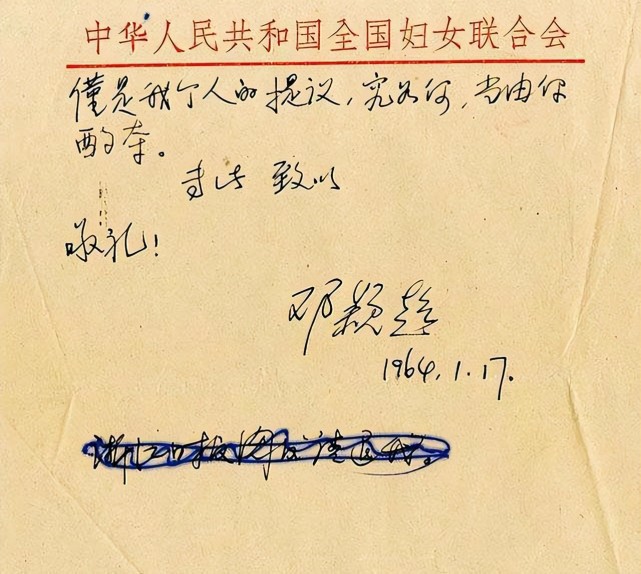 中华人民共和国全国妇女联合会
仅是我个人的提议，究如何，当由你
酌夺。
专此 致以
敬礼！
邓颖超
1964.1.17.
浙江日报